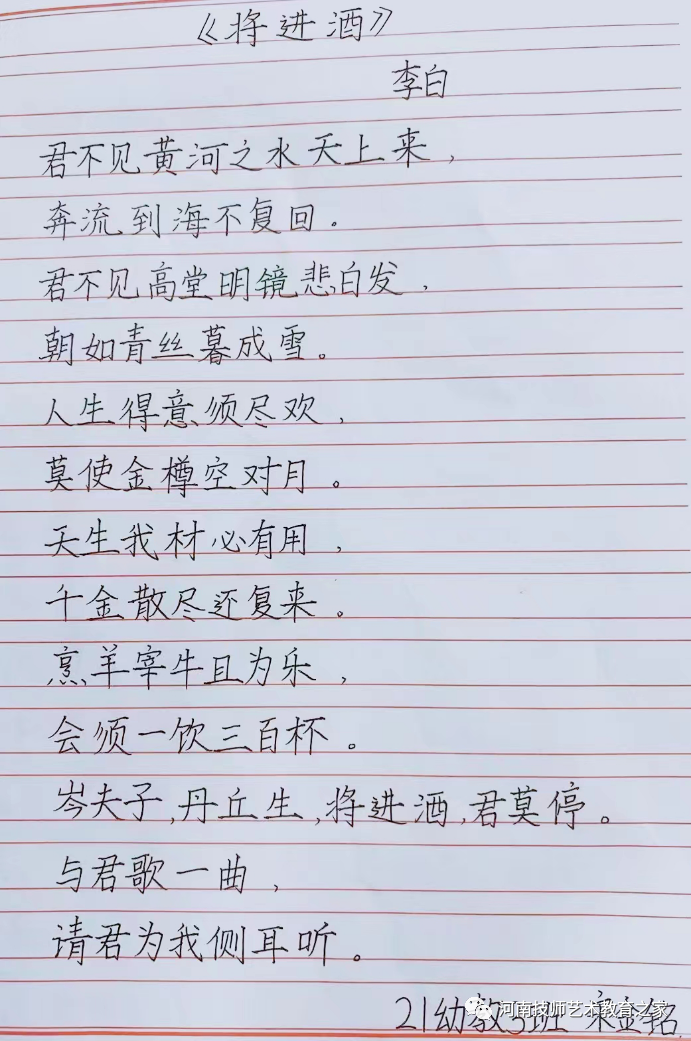 《将进酒》
李白
君不见黄河之水天上来，
奔流到海不复回。
君不见高堂明镜悲白发，
朝如青丝暮成雪。
人生得意须尽欢，
莫使金樽空对月。
天生我材必有用，
千金散尽还复来。
烹羊宰牛且为乐，
会须一饮三百杯。
岑夫子，丹丘生，将进酒，君莫停。
与君歌一曲，
请君为我侧耳听。
21幼教3班 宋金铭
河南技师艺术教育之家